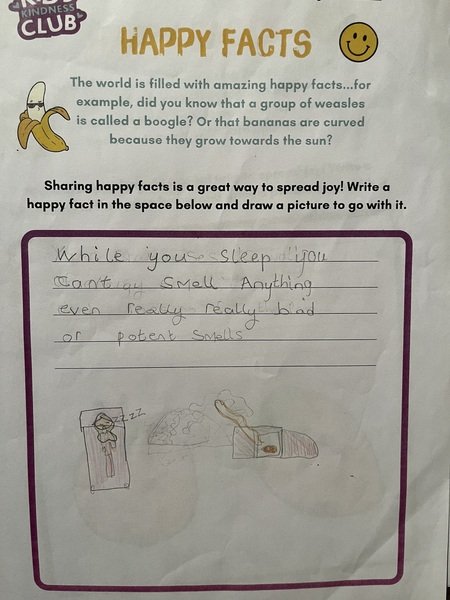 KIDS
KINDNESS
CLUB
HAPPY FACTS
The world is filled with amazing happy facts...for
example, did you know that a group of weasles
is called a boogle? Or that bananas are curved
because they grow towards the sun?
Sharing happy facts is a great way to spread joy! Write a
happy fact in the space below and draw a picture to go with it.
While you sleep you
Can't smell Anything
even really really bad
or potent smells
zzzz